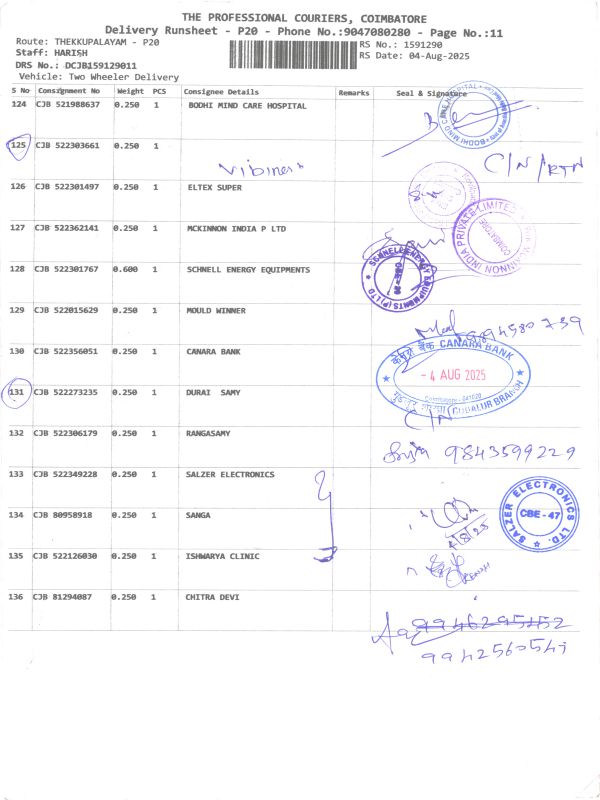 THE PROFESSIONAL COURIERS, COIMBATORE
Delivery Runsheet - P20 - Phone No.:9047080280 - Page No.:11
Route: THEKKUPALAYAM - P20
Staff: HARISH
DRS No.: DCJB159129011
Vehicle: Two Wheeler Delivery
RS No.: 1591290
RS Date: 04-Aug-2025
S No Consignment No Weight PCS Consignee Details Remarks Seal & Signature
124 CJB 521988637 0.250 1 BODHI MIND CARE HOSPITAL
125 CJB 522303661 0.250 1
C/N/RTN
126 CJB 522301497 0.250 1 ELTEX SUPER
127 CJB 522362141 0.250 1 MCKINNON INDIA P LTD
MCKINNON INDIA PRIVATE LIMITED
COIMBATORE
128 CJB 522301767 0.600 1 SCHNELL ENERGY EQUIPMENTS
SCHNELL ENERGY EQUIPMENTS (P) LTD
129 CJB 522015629 0.250 1 MOULD WINNER
130 CJB 522356051 0.250 1 CANARA BANK
केनरा बैंक CANARA BANK
- 4 AUG 2025
Coimbatore - 641020
GUDALUR BRANCH
131 CJB 522273235 0.250 1 DURAI SAMY
C/N
132 CJB 522306179 0.250 1 RANGASAMY
9843599229
133 CJB 522349228 0.250 1 SALZER ELECTRONICS
SALZER ELECTRONICS LTD.
CBE - 47
134 CJB 80958918 0.250 1 SANGA
4/8/25
135 CJB 522126030 0.250 1 ISHWARYA CLINIC
136 CJB 81294087 0.250 1 CHITRA DEVI